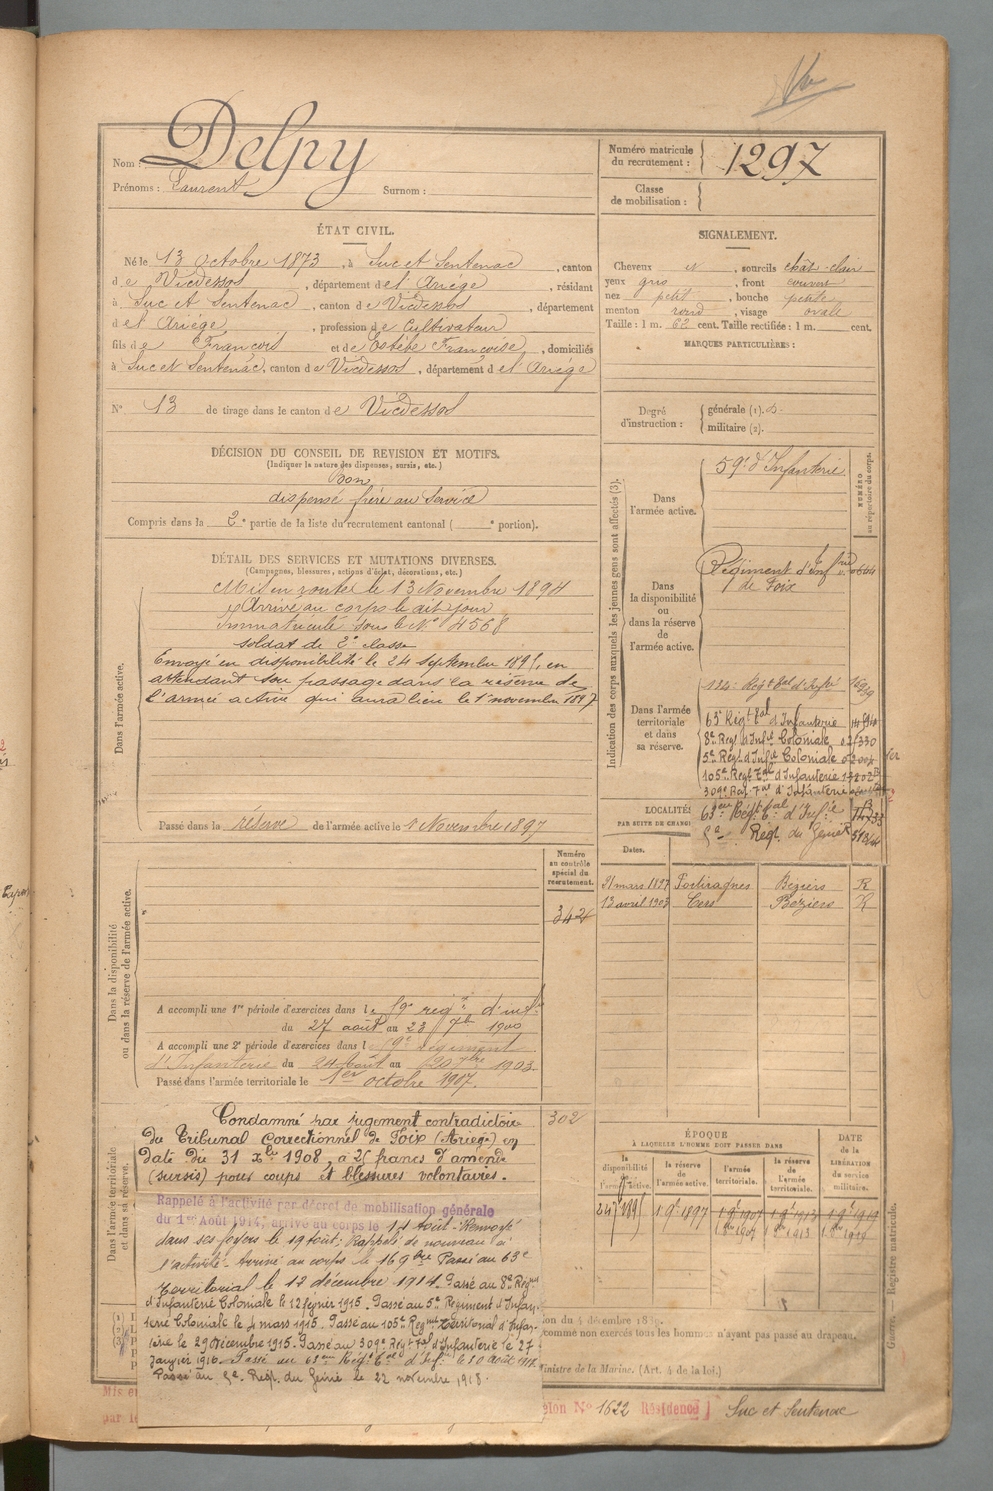 Nom : Delpy
Prénoms : Laurent Surnom :
Numéro matricule
du recrutement : 1297
Classe
de mobilisation :
ÉTAT CIVIL.
Né le 13 octobre 1873, à Suc et Sentenac, canton
de Vicdessos, département de l'Ariège, résidant
à Suc et Sentenac, canton de Vicdessos, département
de l'Ariège, profession de Cultivateur
fils de François et de Estèbe Françoise, domiciliés
à Suc et Sentenac, canton de Vicdessos, département de l'Ariège
N° 13 de tirage dans le canton de Vicdessos
SIGNALEMENT.
Cheveux id, sourcils chât-clair
yeux gris, front couvert
nez petit, bouche petite
menton rond, visage ovale
Taille : 1 m. 62 cent. Taille rectifiée : 1 m. cent.
MARQUES PARTICULIÈRES :
Degré
d'instruction :
générale (1).
militaire (2).
DÉCISION DU CONSEIL DE REVISION ET MOTIFS.
(Indiquer la nature des dispenses, sursis, etc.)
Bon
dispensé frère au service
Compris dans la 2e partie de la liste du recrutement cantonal ( e portion).
DÉTAIL DES SERVICES ET MUTATIONS DIVERSES.
(Campagnes, blessures, actions d'éclat, décorations, etc.)
Dans l'armée active.
Mis en route le 13 Novembre 1894
Arrivé au corps le dit jour
Immatriculé sous le N° 4568
soldat de 2e classe
Envoyé en disponibilité le 24 septembre 1895, en
attendant son passage dans la réserve de
l'armée active qui aura lieu le 1er novembre 1897
Passé dans la réserve de l'armée active le 1 Novembre 1897
Indication des corps auxquels les jeunes gens sont affectés (3).
NUMÉRO
au répertoire du corps.
Dans
l'armée active.
59e d'Infanterie
Dans
la disponibilité
ou
dans la réserve
de
l'armée active.
Régiment d'Infrie
de Foix
Dans l'armée
territoriale
et dans
sa réserve.
134e Régt tal d'Infie
63e Régt tal d'Infanterie
8e Régt d'Infie Coloniale
5e Régt d'Infie Coloniale
105e Régt Tal d'Infanterie
309e Bat. Tal d'Infanterie
63eme Régt tal d'Infie
Régt du Génie
LOCALITÉS
PAR SUITE DE CHANG
Dates.
31 mars 1897 Portiragnes Béziers R
13 avril 1903 Cers Béziers R
Numéro
au contrôle
spécial du
recrutement.
342
Dans la disponibilité
ou dans la réserve de l'armée active.
A accompli une 1re période d'exercices dans le 59e régt d'inf
du 27 août au 23 7b 1900
A accompli une 2e période d'exercices dans l 59e régiment
d'Infanterie du 24 Août au 20 7bre 1903.
Passé dans l'armée territoriale le 1er octobre 1907.
302
Dans l'armée territoriale
et dans sa réserve.
Condamné par jugement contradictoire
du Tribunal Correctionnel de Foix (Ariège) en
date du 31 xbre 1908, à 25 francs d'amende
(sursis) pour coups et blessures volontaires.
Rappelé à l'activité par décret de mobilisation générale
du 1er Août 1914, arrivé au corps le 14 Août. Renvoyé
dans ses foyers le 19 Août. Rappelé de nouveau à
l'activité. Arrivé au corps le 16 9bre Passé au 63e
Territorial le 12 décembre 1914. Passé au 8e Régmt
d'Infanterie Coloniale le 12 février 1915. Passé au 5e Régiment d'Infan-
terie Coloniale le 4 mars 1915. Passé au 105e Regmt Territorial d'Infan-
terie le 29 Décembre 1915. Passé au 309e Régt Tal d'Infanterie le 27
Janvier 1916. Passé au 63eme Régt tal d'Infie le 10 Août 1917.
Passé au Regt du Génie le 22 novembre 1918.
ÉPOQUE
À LAQUELLE L'HOMME DOIT PASSER DANS
la
disponibilité
de
l'armée active.
la réserve
de
l'armée active.
l'armée
territoriale.
la réserve
de
l'armée
territoriale.
DATE
de la
LIBÉRATION
du service
militaire.
24 7b 1895 1 9b 1897 1 9b 1907 1 9b 1913 1 9b 1919
1 8bre 1907 1 8bre 1913 1 8bre 1919
ion du 4 décembre 1889.
comme non exercés tous les hommes n'ayant pas passé au drapeau.
Ministre de la Marine. (Art. 4 de la loi.)
Guerre. — Registre matricule.
Mis en
par le
N° 1622 Résidence Suc et Sentenac